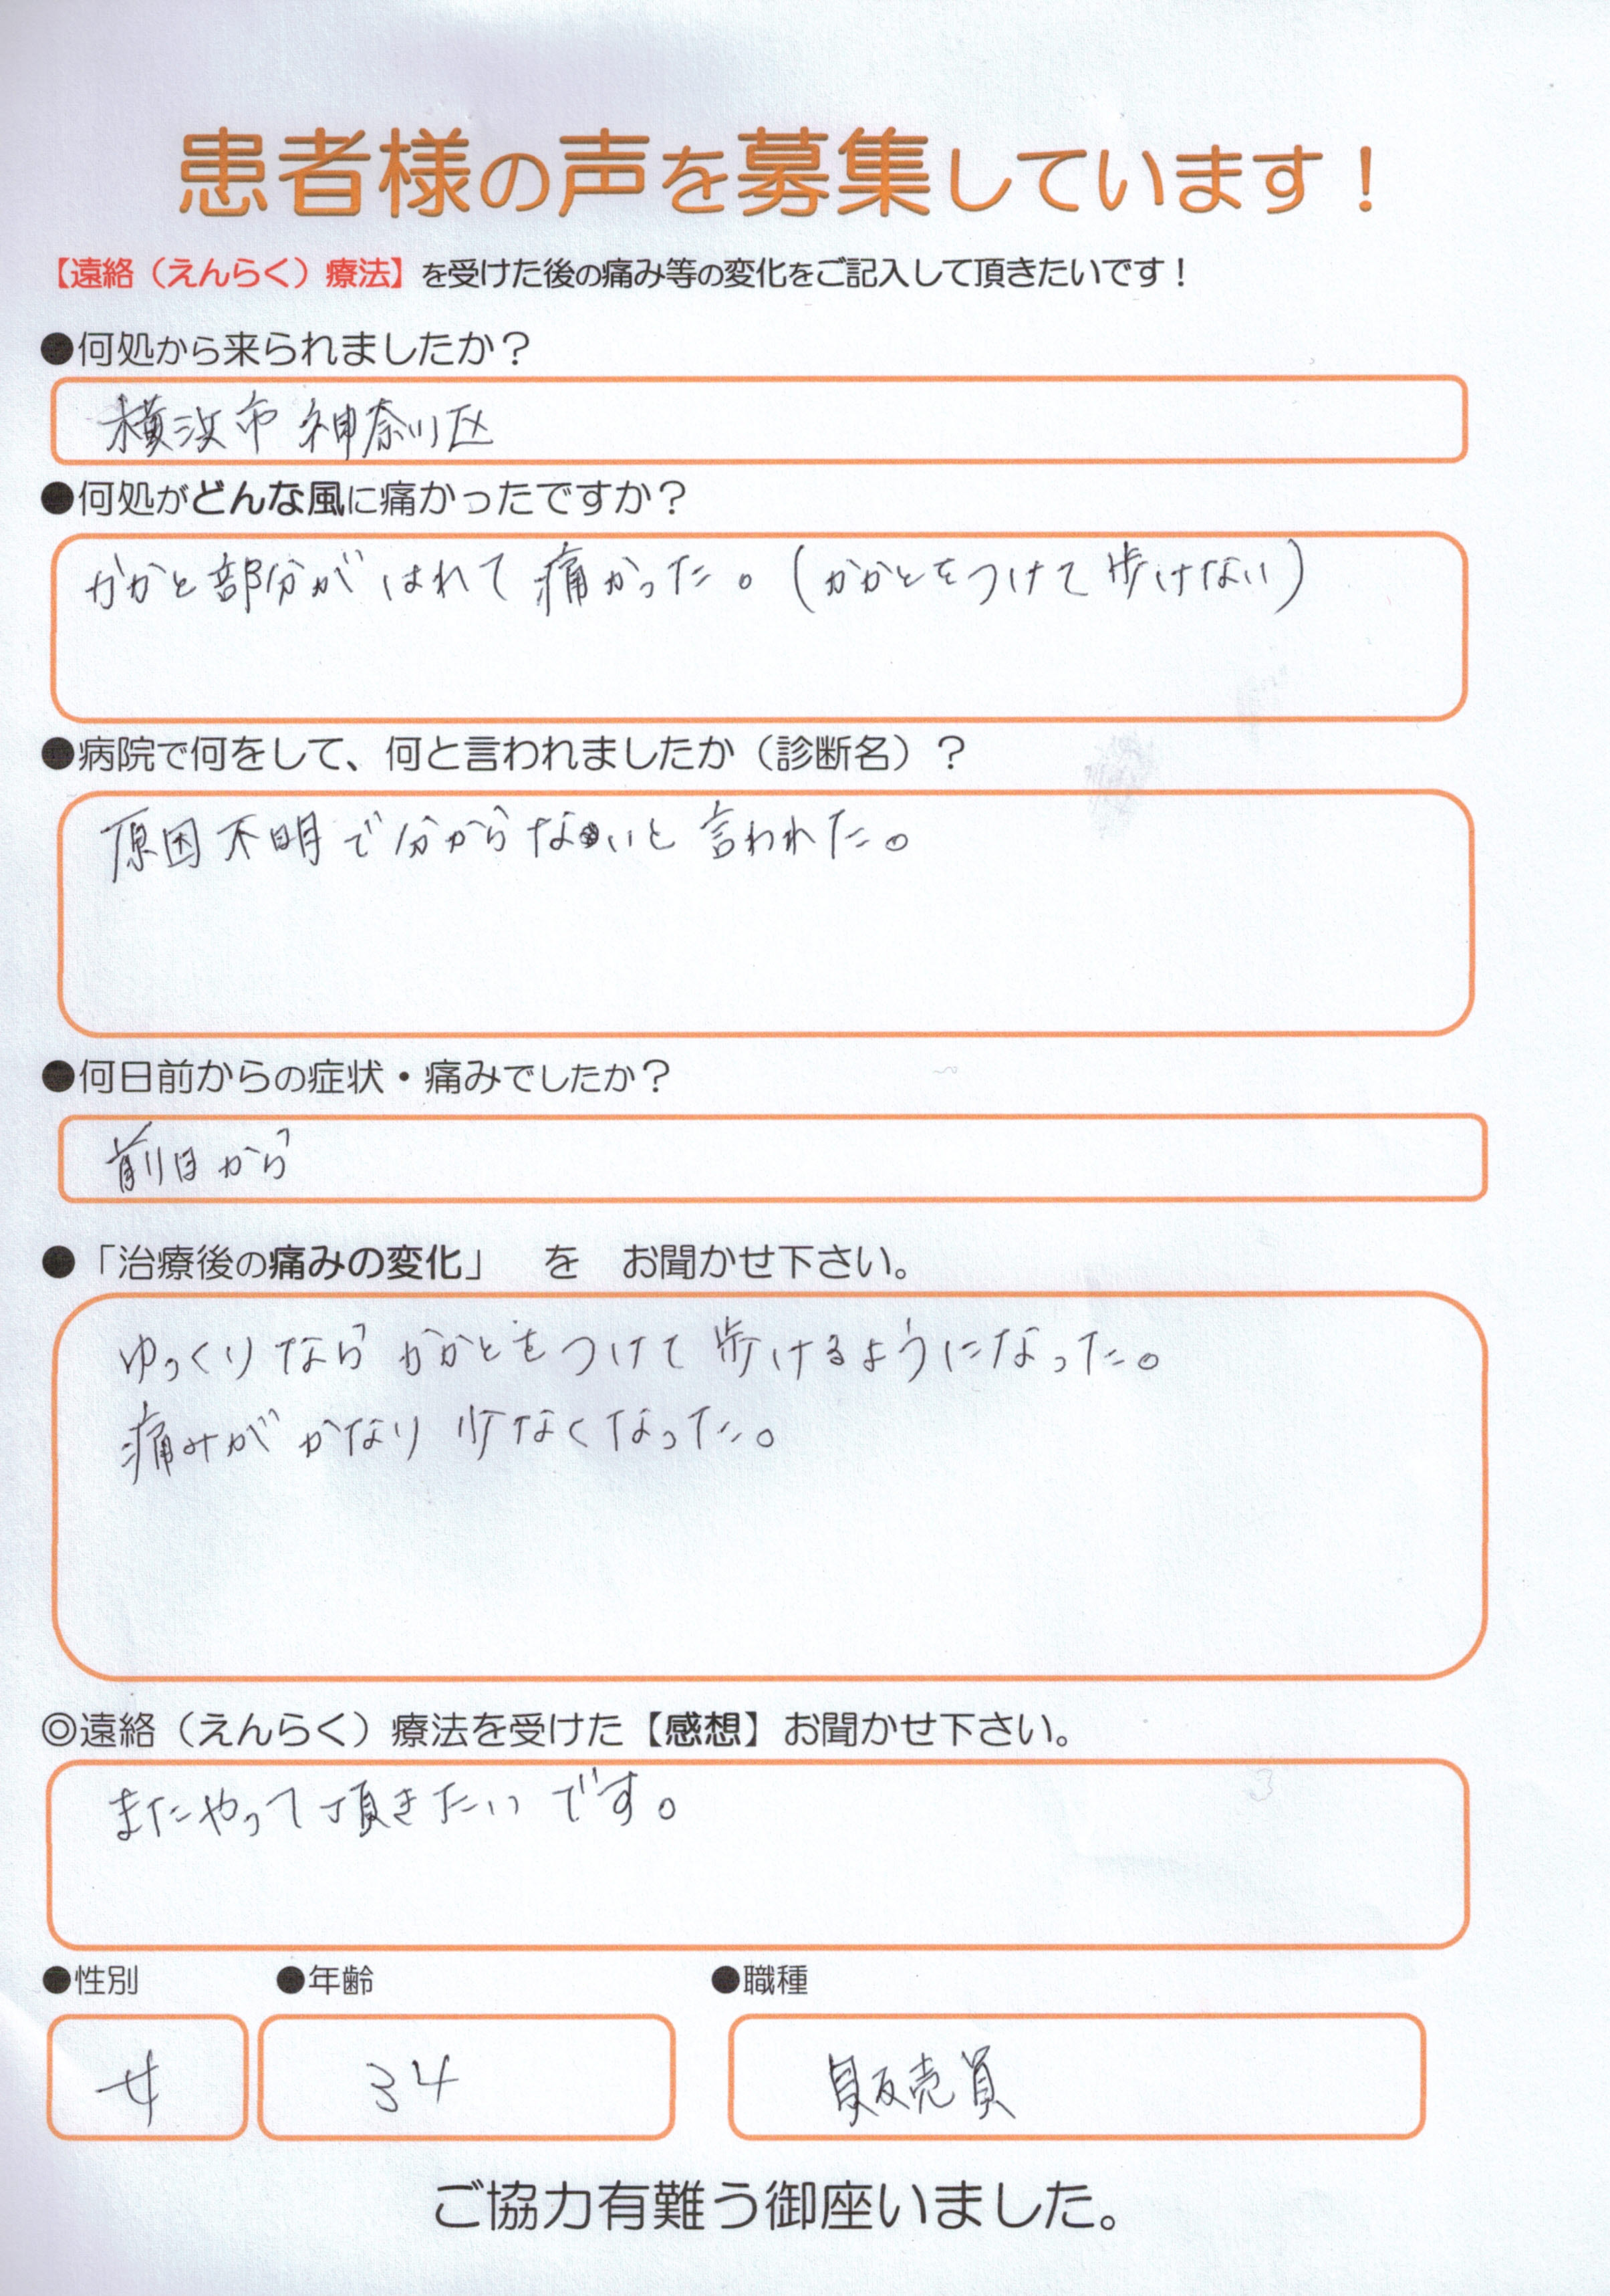 患者様の声を募集しています！
【遠絡（えんらく）療法】を受けた後の痛み等の変化をご記入して頂きたいです！
●何処から来られましたか？
横浜市 神奈川区
●何処がどんな風に痛かったですか？
かかと部分がはれて痛かった。（かかとをつけて歩けない）
●病院で何をして、何と言われましたか（診断名）？
原因不明で分からないと言われた。
●何日前からの症状・痛みでしたか？
前日から
●「治療後の痛みの変化」 を お聞かせ下さい。
ゆっくりならかかとをつけて歩けるようになった。
痛みがかなり少なくなった。
◎遠絡（えんらく）療法を受けた【感想】お聞かせ下さい。
またやって頂きたいです。
●性別 ●年齢 ●職種
女 34 販売員
ご協力有難う御座いました。